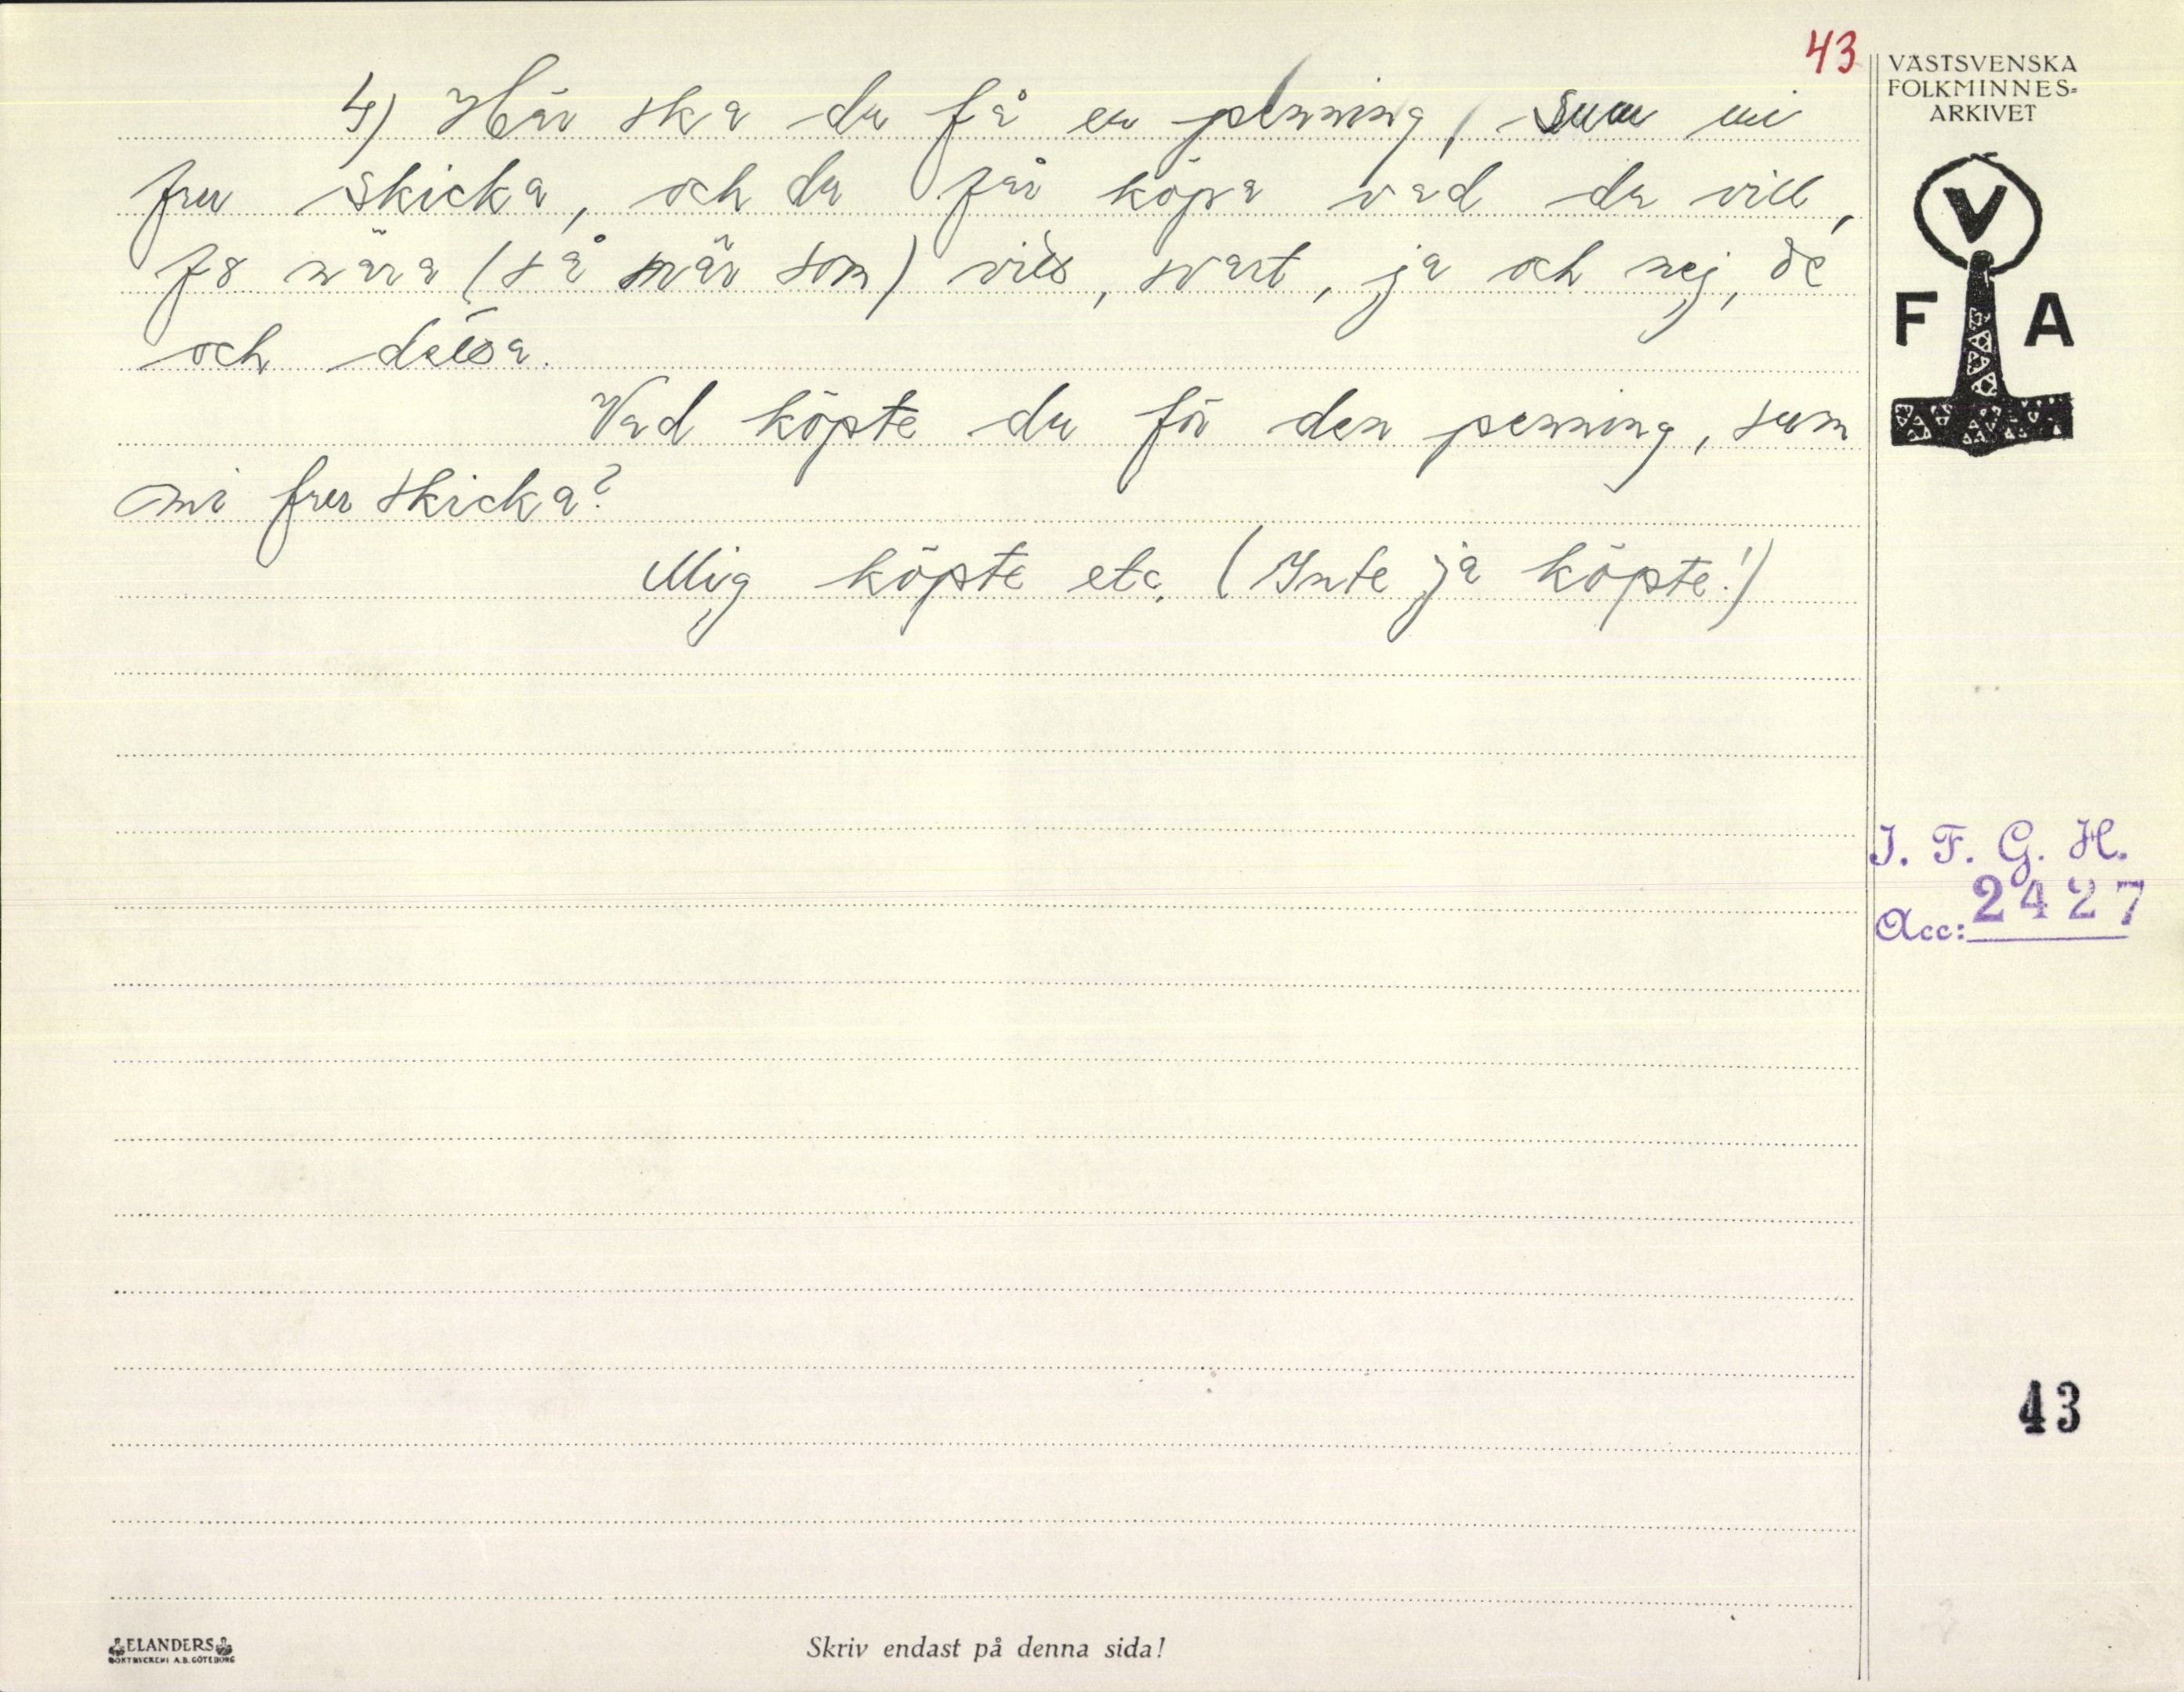 43
VÄSTSVENSKA
FOLKMINNES=
ARKIVET
4) Här ska du få en penning, sum mi
fru skicka, och du får köpa vad du vill,
så nära (så när som) vitt, svart, ja och nej, dé
och dessa.
Vad köpte du för den penning, sum
mi fru skicka?
Mig köpte etc. (Inte ja köpte!)
V
F A
I. F. G. H.
Acc: 2427
43
ELANDERS
BOKTRYCKERI A.B. GÖTEBORG
Skriv endast på denna sida!